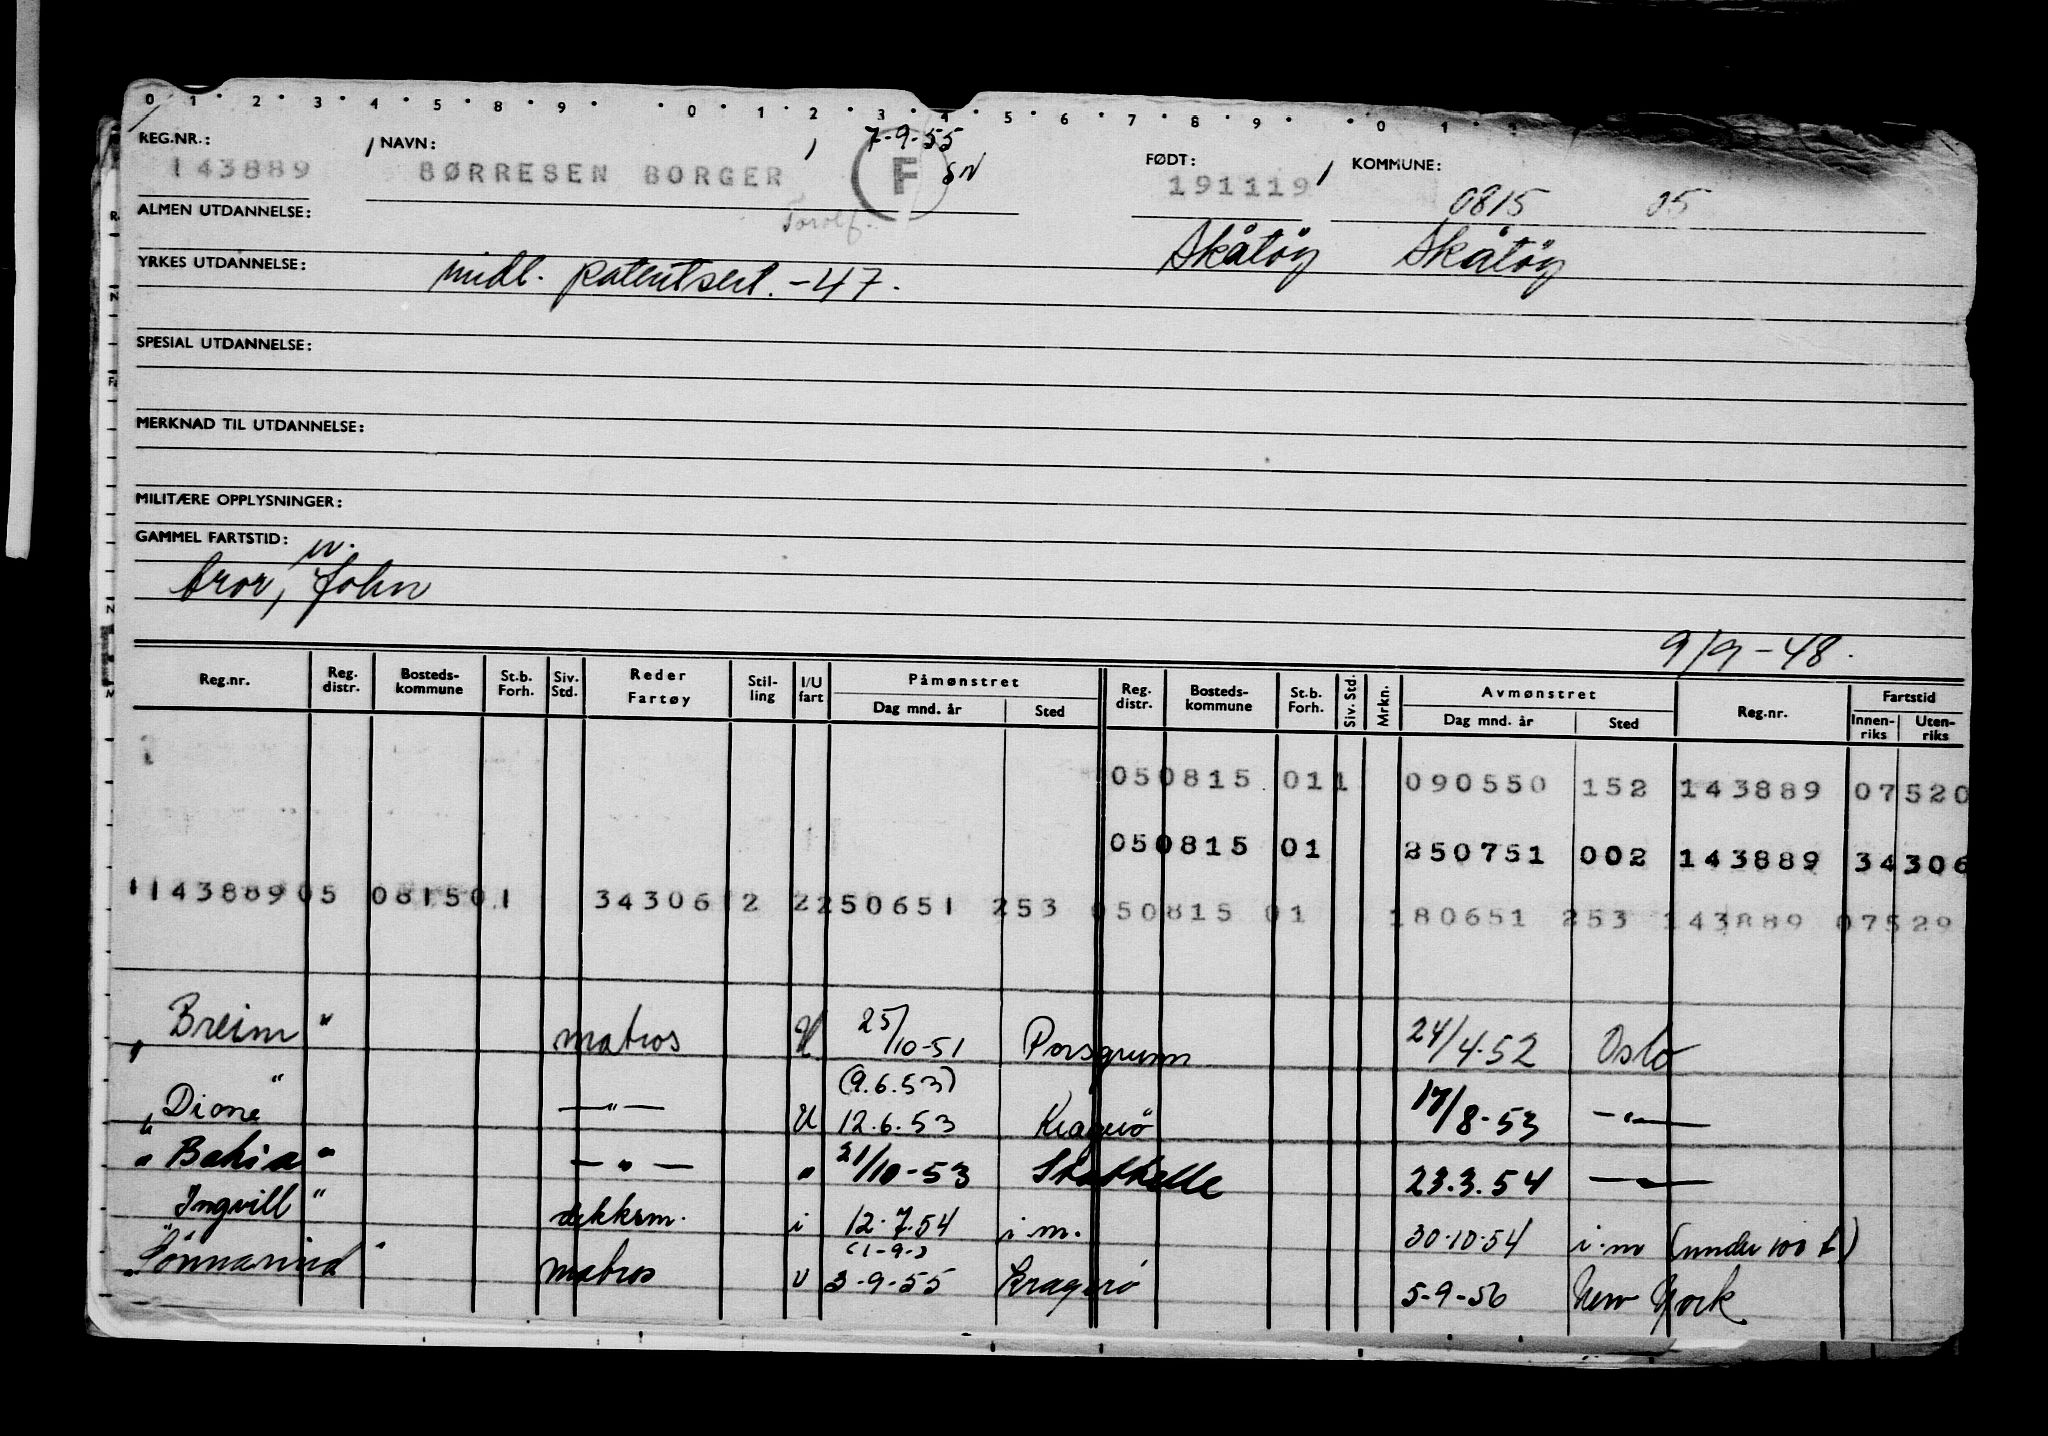 0 1 · 2 · 3 · 4 · 5 · 8 · 9 · · 0 · 1 · 2 · 3 · 4 · 5 · 6 · 7 · 8 · 9 · · 0 · 1
REG.NR.: NAVN: 7-9-55 FØDT: KOMMUNE:
143889 BØRRESEN BORGER F SN 191119 0815 05
ALMEN UTDANNELSE: Torolf. Skåtöy Skåtöy
YRKES UTDANNELSE: midl. patentsert. -47.
SPESIAL UTDANNELSE:
MERKNAD TIL UTDANNELSE:
MILITÆRE OPPLYSNINGER:
GAMMEL FARTSTID:
bror, John
9/9-48.
Reg.nr. Reg. distr. Bosteds-kommune St.b. Forh. Siv. Std. Reder Fartøy Stil-ling I/U fart Påmønstret Dag mnd. år Sted Reg. distr. Bosteds-kommune St.b. Forh. Siv. Std. Mrkn. Avmønstret Dag mnd. år Sted Reg.nr. Fartstid Innen-riks Uten-riks
050815 011 090550 152 143889 07520
050815 01 250751 002 143889 34306
114388905 081501 34306 12 2250651 253 050815 01 180651 253 143889 07529
" Breim " matros U 25/10-51 Porsgrunn 24/4.52 Oslo
(9.6.53)
" Dione " —"— U 12.6.53 Kragerö 17/8-53 —"—
" Bahia " —"— " 21/10-53 Stathelle 23.3.54 —"—
Ingvill " dekksm. i 12.7.54 i.m. 30.10.54 i.m (under 100 t)
(1-9-)
"Sönnavind " matros U 3-9-55 Kragerö 5-9-56 New York